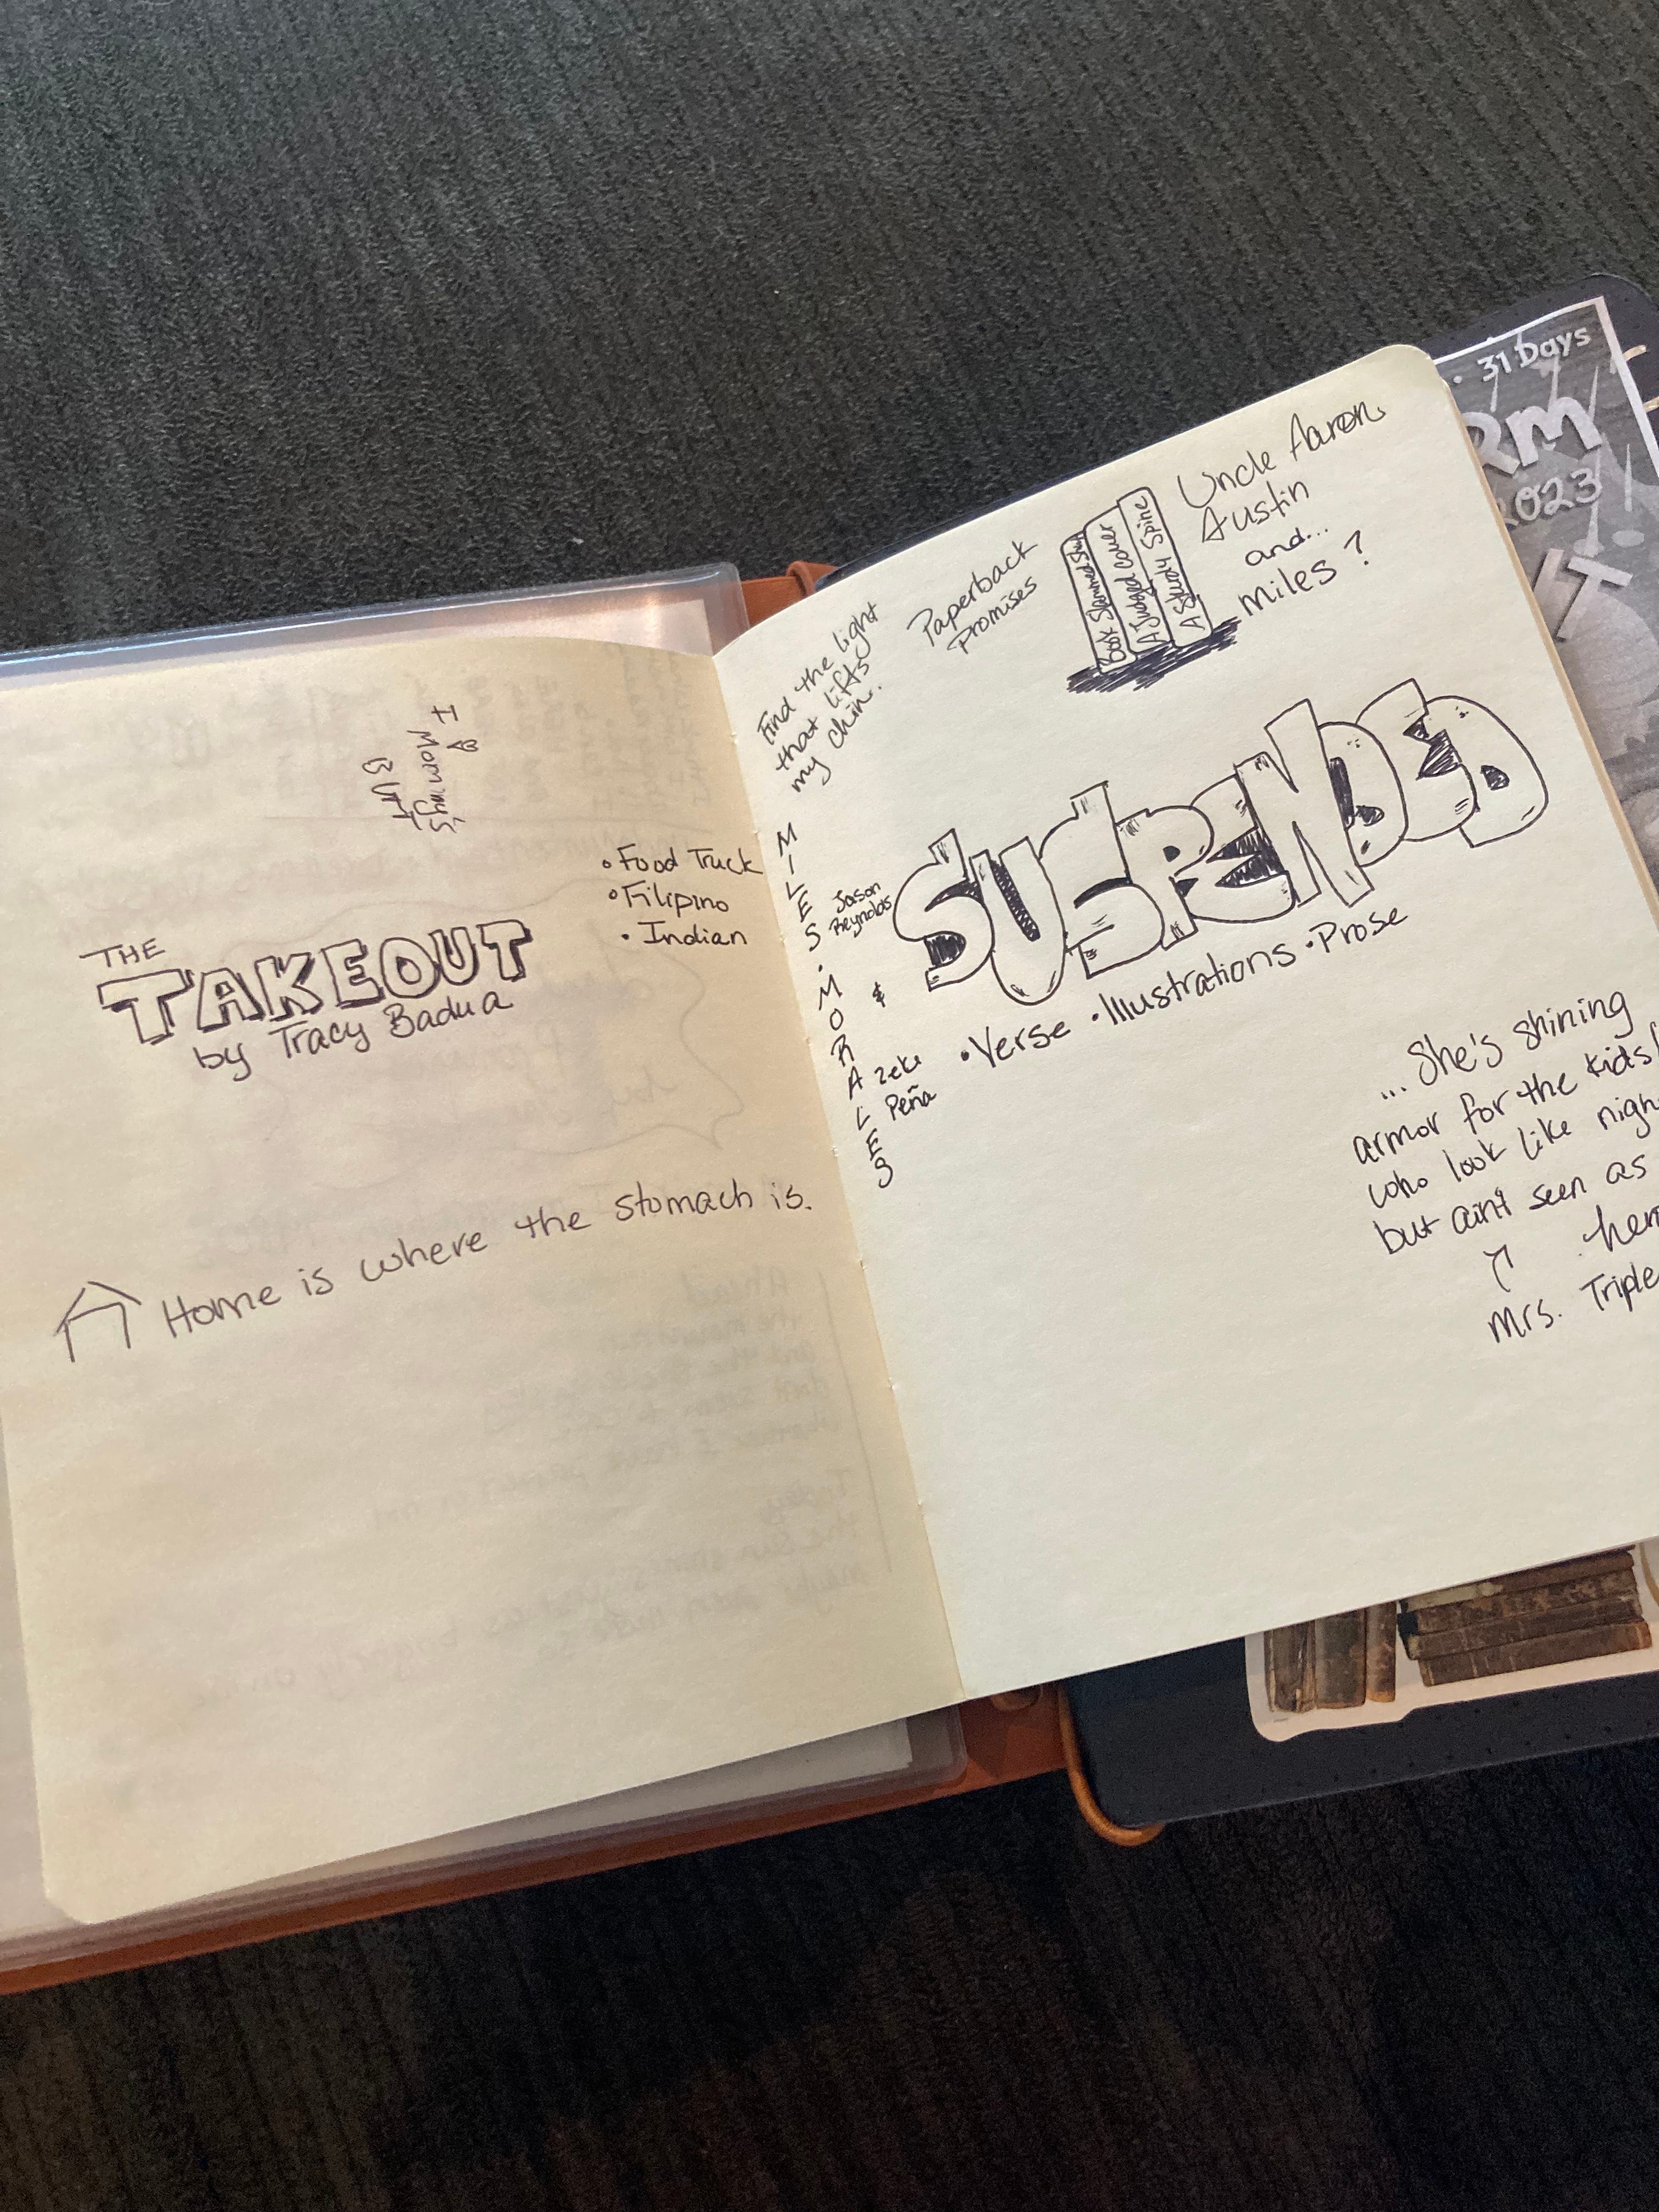 I ♡
Mommy's
Butt
• Food Truck
• Filipino
• Indian
THE
TAKEOUT
by Tracy Badua
Home is where the stomach is.
Find the light
that lifts
my chin.
Paperback
Promises
A Judged Cover
A Sturdy Spine
Uncle Aaron,
Austin
and...
Miles?
MILES • MORALES
Jason
Reynolds
&
Zeke
Peña
SUSPENDED
• Verse • Illustrations • Prose
... She's shining
armor for the kids
who look like nigh
but ain't seen as
her
Mrs. Triple
• 31 Days
RM
2023